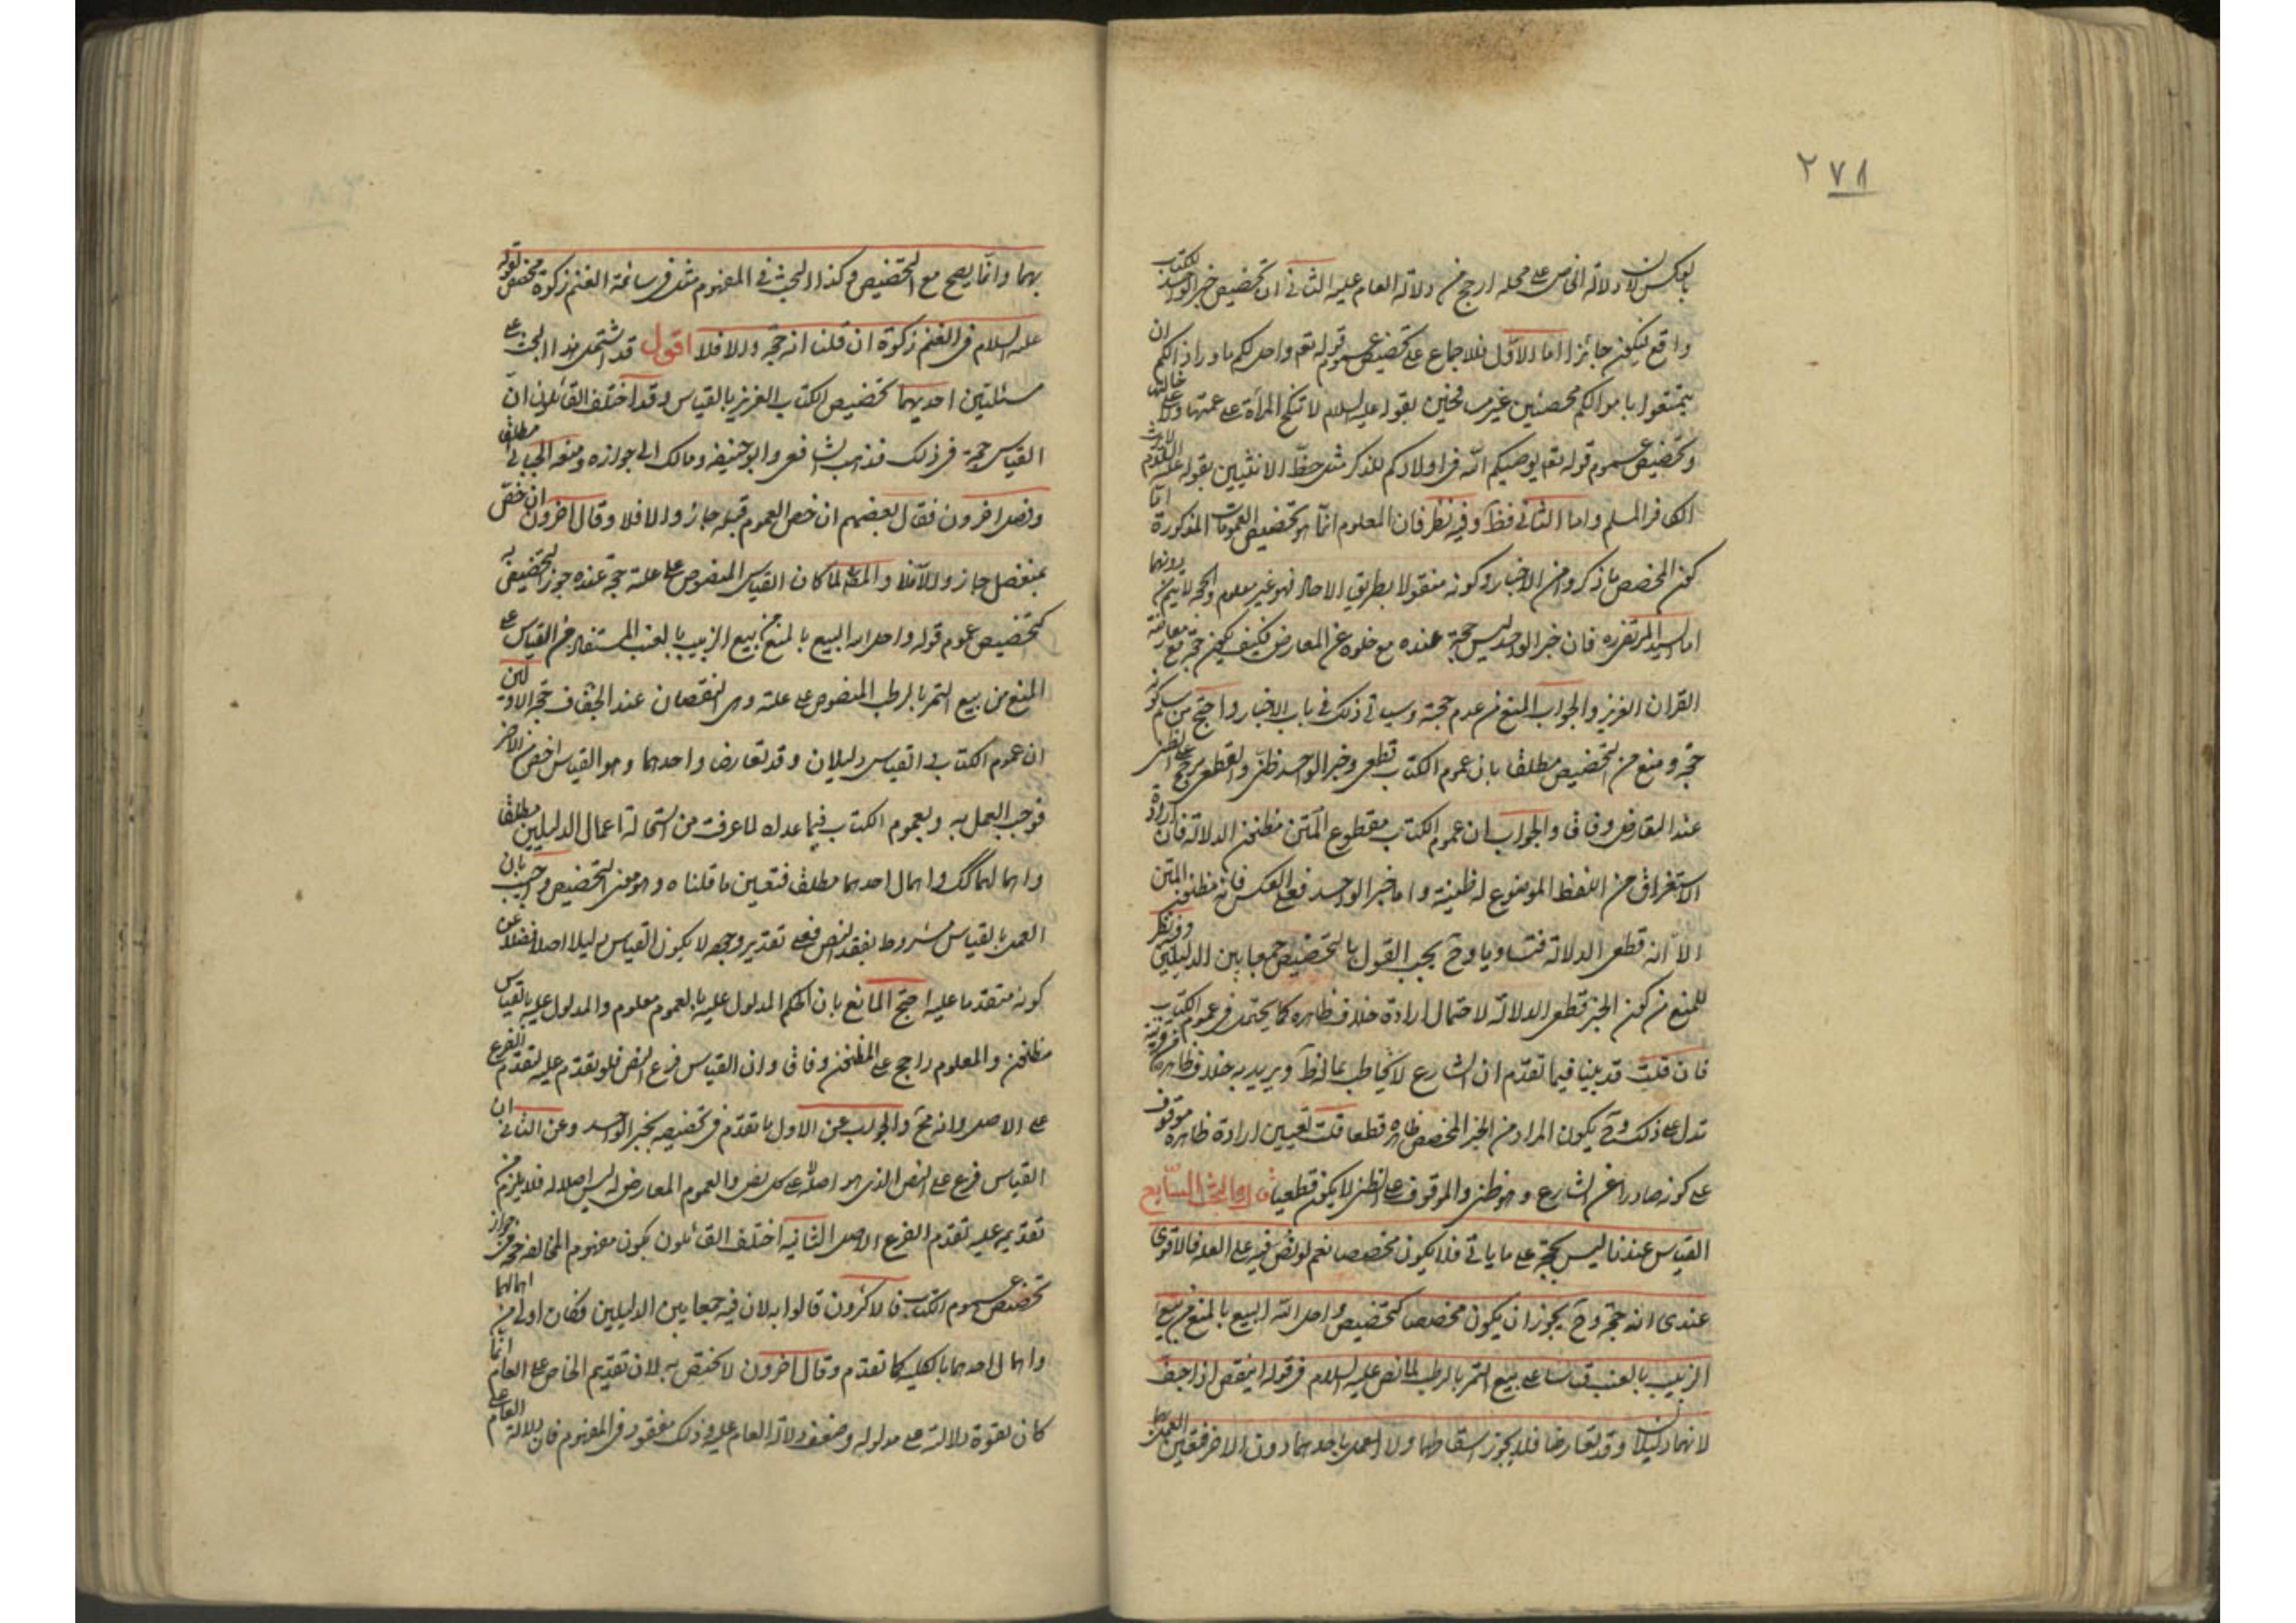 ٢٧٨
بالعكس لان دلالة الخاص على محله ارجح من دلالة العام عليه الثانى ان تخصيص خبر الواحد للكتاب
واقع فيكون جائزا اما الاول فللاجماع على تخصيص عموم قوله تع واحل لكم ما وراء ذالكم ان
تبتغوا باموالكم محصنين غير مسافحين بقوله عليه السلام لا تنكح المرأة على عمتها ولا على خالتها
وتخصيص عموم قوله تع يوصيكم الله فى اولادكم للذكر مثل حظ الانثيين بقوله عليه السلام لا يرث
الكافر المسلم واما الثانى فظ وفيه نظر فان المعلوم انما هو تخصيص العمومات المذكورة اما
كون المخصص ما ذكروا من الاخبار وكونه منقولا بطريق الاحاد فهو غير معلوم والحجة لا يتم بدونهما
اما السيد المرتضى ره فان خبر الواحد ليس حجة عنده مع خلوه عن المعارض فكيف يكون حجة مع معارضة
القران العزيز والجواب المنع من عدم حجيته وسياتى ذلك فى باب الاخبار واحتج من سلم كونه
حجة ومنع من التخصيص مطلقا بان عموم الكتاب قطعى وخبر الواحد ظنى والقطعى يرجح على الظنى
عند التعارض وفاقا والجواب ان عموم الكتاب مقطوع المتن مظنون الدلالة فان ارادة
الاستغراق من اللفظ الموضوع له ظنية واما خبر الواحد فعلى العكس فانه مظنون المتن
الا انه قطعى الدلالة فتساويا وح يجب القول بالتخصيص جمعا بين الدليلين وفيه نظر
للمنع من كون الخبر قطعى الدلالة لاحتمال ارادة خلاف ظاهره كما يحتمل فى عموم الكتاب
فان قلت قد بينا فيما تقدم ان الشارع لا يخاطب بما له ظ ويريد به خلاف ظاهره من دون قرينة
تدل على ذلك وح يكون المراد من الخبر المخصص ظاهره قطعا قلت تعيين ارادة ظاهره موقوف
على كونه صادرا عن الشارع وهو ظنى والموقوف على الظنى لا يكون قطعيا قال البحث السابع
القياس عندنا ليس بحجة على ما ياتى فلا يكون مخصصا نعم لو نص فيه على العلة فالاقوى
عندى انه حجة وح يجوز ان يكون مخصصا كتخصيص واحل الله البيع بالمنع من بيع
الزبيب بالعنب قياسا على بيع التمر بالرطب لما نص عليه السلام فى قوله اينقص اذا جف
لانهما دليلان وقد تعارضا فلا يجوز اسقاطهما ولا العمل باحدهما دون الاخر فتعين العمل
بهما وانما يصح مع التخصيص وكذا البحث فى المفهوم مثل فى سائمة الغنم زكوة مخصص لقوله
عليه السلام فى الغنم زكوة ان قلنا انه حجة والا فلا اقول قد اشتمل هذا البحث على
مسئلتين احديهما تخصيص الكتاب العزيز بالقياس وقد اختلف القائلون ان
القياس حجة فى ذلك فذهب الشافعى وابو حنيفه ومالك الى جوازه ومنعه الجبائى مطلقا
وفصل اخرون فقال بعضهم ان خص العموم قبله جاز والا فلا وقال اخرون ان خص
بمنفصل جاز والا فلا والمص لما كان القياس المنصوص على علته حجة عنده جوز التخصيص به
كتخصيص عموم قوله واحل الله البيع بالمنع من بيع الزبيب بالعنب المستفاد من القياس على
المنع من بيع التمر بالرطب المنصوص على علته وهى النقصان عند الجفاف حجة الاولين
ان عموم الكتاب والقياس دليلان وقد تعارضا واحدهما وهو القياس اخص من الاخر
فوجب العمل به وبعموم الكتاب فيما عداه لما عرفت من استحالة اعمال الدليلين مطلقا
واهمالهما كك واهمال احدهما مطلقا فتعين ما قلناه وهو معنى التخصيص واجيب بان
العمل بالقياس مشروط بفقد النص فعلى تقدير وجوده لا يكون القياس دليلا اصلا فضلا عن
كونه متقدما عليه احتج المانع بان الحكم المدلول عليه بالعموم معلوم والمدلول عليه بالقياس
مظنون والمعلوم راجح على المظنون وفاقا وان القياس فرع النص فلو تقدم عليه لتقدم الفرع
على الاصل وانه مح والجواب عن الاول ما تقدم فى تخصيصه بخبر الواحد وعن الثانى ان
القياس فرع على النص الذى هو اصله لا على كل نص والعموم المعارض له ليس اصلا له فلا يلزم من
تقديمه عليه تقدم الفرع الاصل الثانيه اختلف القائلون بكون مفهوم المخالفة حجة فى جواز
تخصيص عموم الكتاب به فالاكثرون قالوا به لان فيه جمعا بين الدليلين فكان اولى من اهمالهما
واهمال احدهما بالكلية كما تقدم وقال اخرون لا يختص به لان تقديم الخاص على العام انما
كان لقوة دلالته على مدلوله وضعف دلالة العام عليه وذلك مفقود فى المفهوم فان دلالة العام على